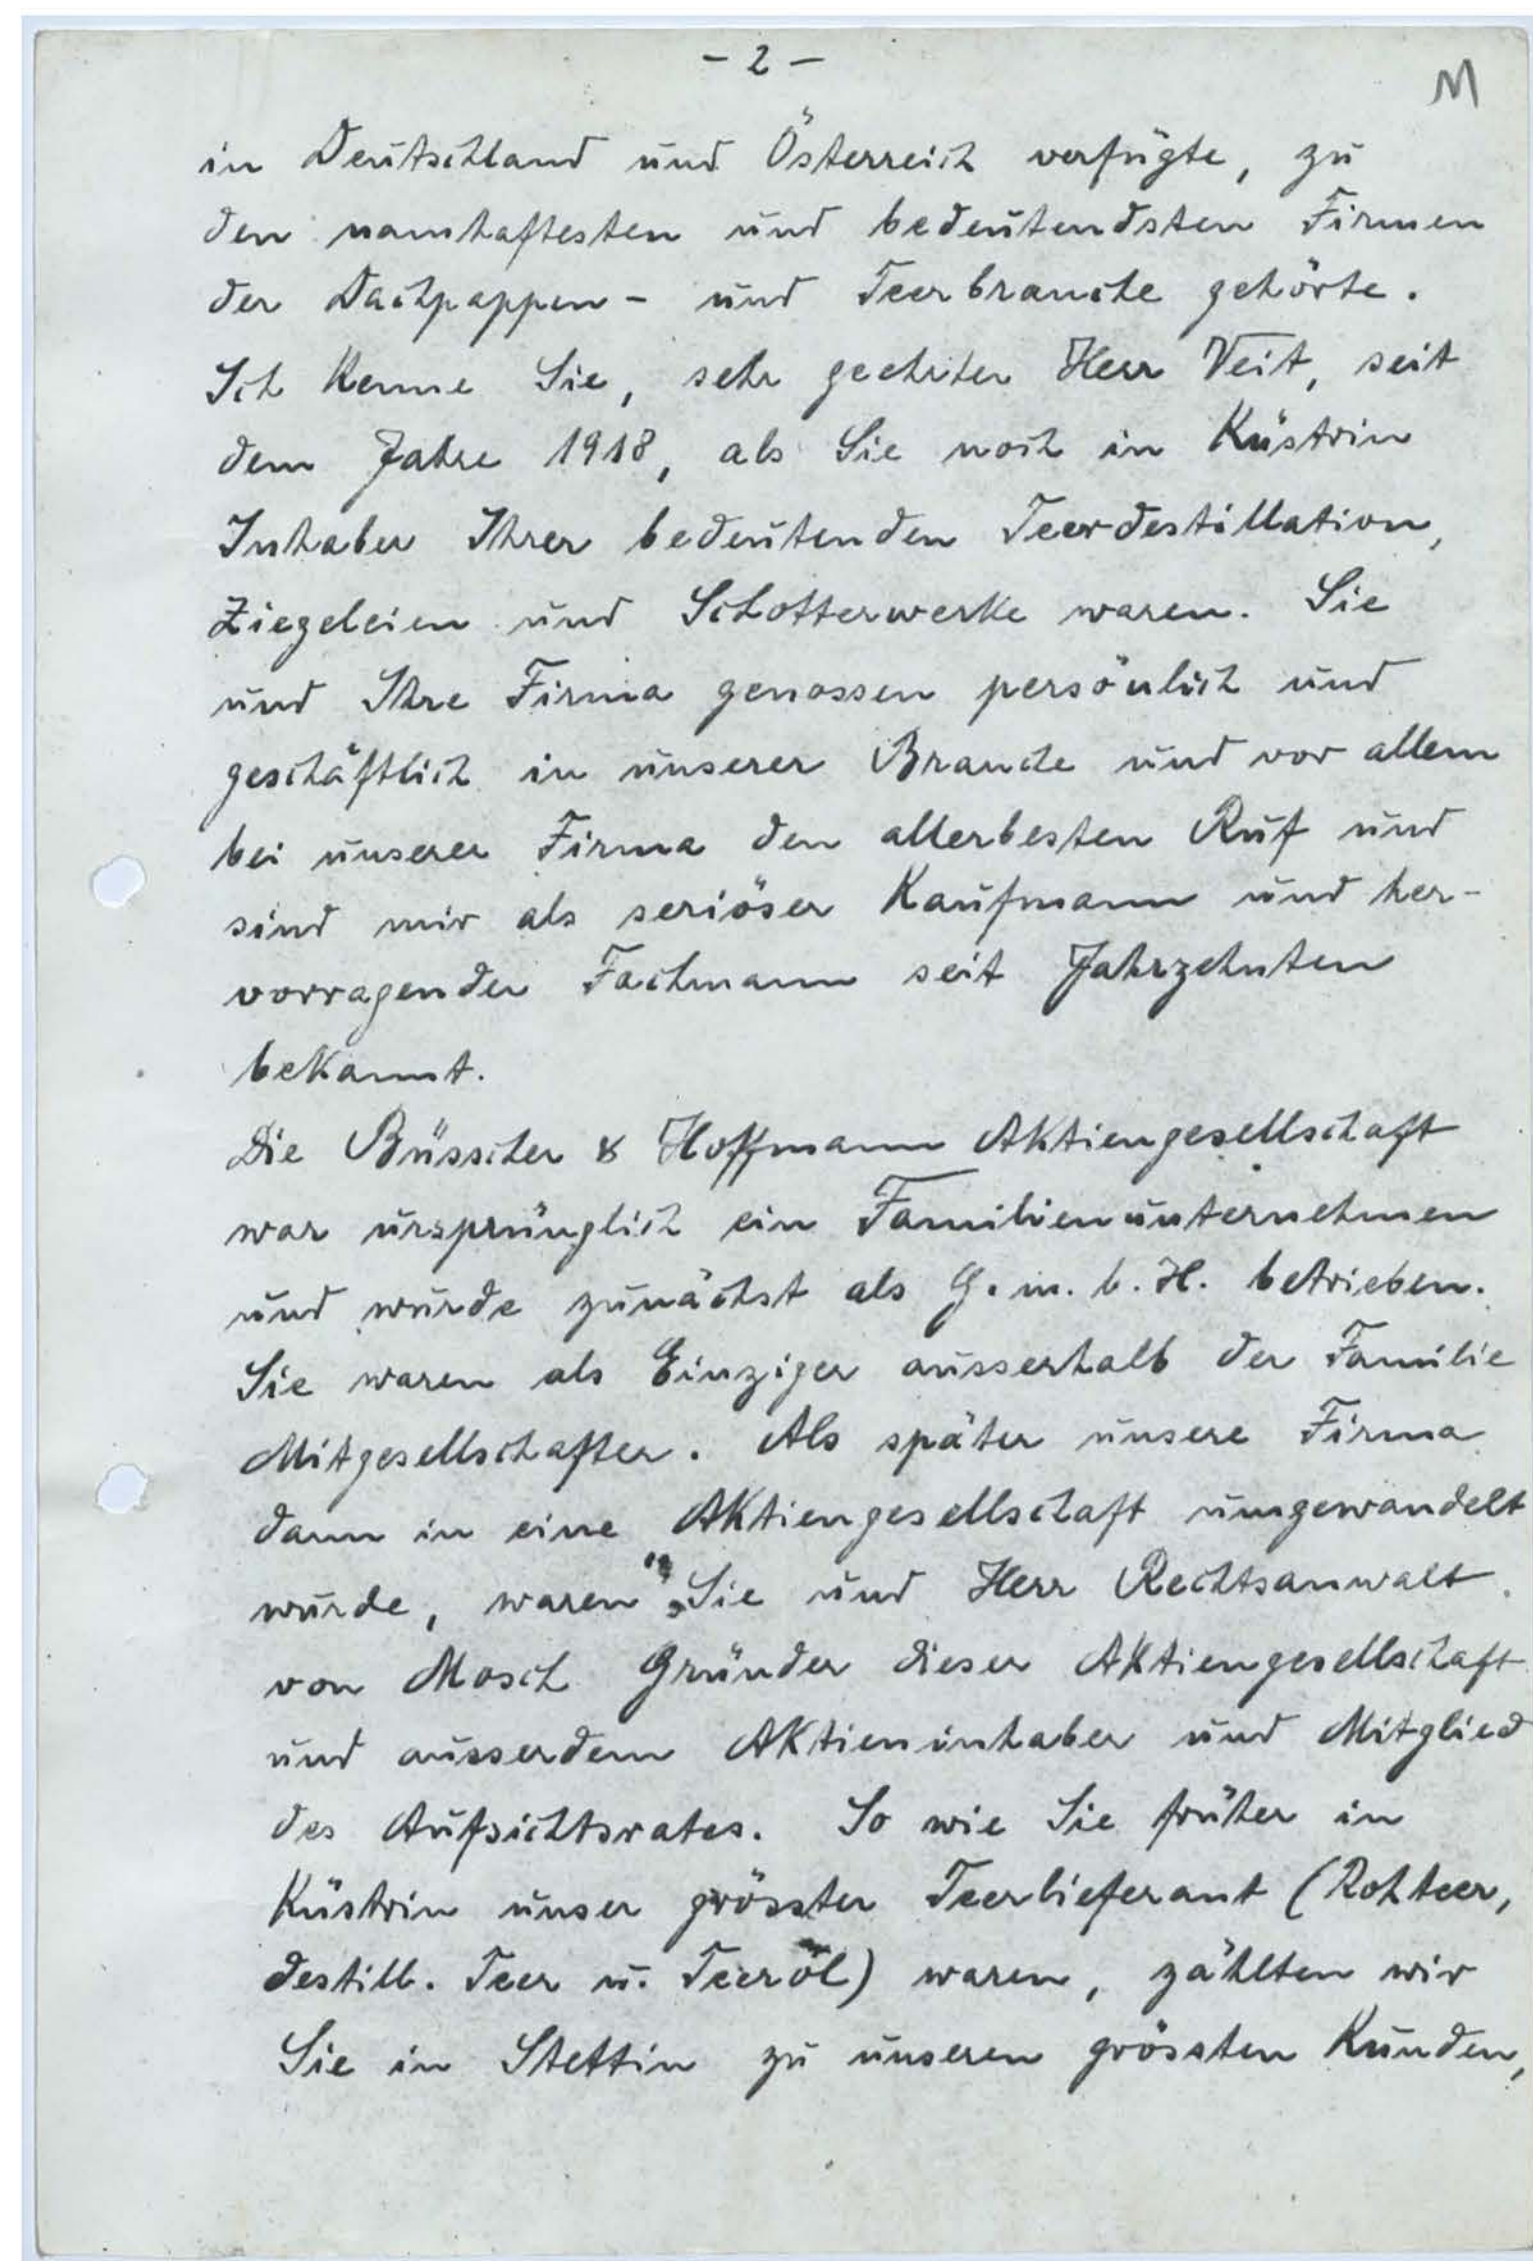 - 2 -
M
in Deutschland und Österreich verfügte, zu
den namhaftesten und bedeutendsten Firmen
der Dachpappen- und Teerbranche gehörte.
Ich kenne Sie, sehr geehrter Herr Veit, seit
dem Jahre 1918, als Sie noch in Küstrin
Inhaber Ihrer bedeutenden Teerdestillation,
Ziegeleien und Schotterwerke waren. Sie
und Ihre Firma genossen persönlich und
geschäftlich in unserer Branche und vor allem
bei unserer Firma den allerbesten Ruf und
sind mir als seriöser Kaufmann und her-
vorragender Fachmann seit Jahrzehnten
bekannt.
Die Büsscher & Hoffmann Aktiengesellschaft
war ursprünglich ein Familienunternehmen
und wurde zunächst als G.m.b.H. betrieben.
Sie waren als Einziger ausserhalb der Familie
Mitgesellschafter. Als später unsere Firma
dann in eine Aktiengesellschaft umgewandelt
wurde, waren Sie und Herr Rechtsanwalt
von Mosch Gründer dieser Aktiengesellschaft
und ausserdem Aktieninhaber und Mitglied
des Aufsichtsrates. So wie Sie früher in
Küstrin unser grösster Teerlieferant (Rohteer,
destill. Teer u. Teeröl) waren, zählten wir
Sie in Stettin zu unseren grössten Kunden,